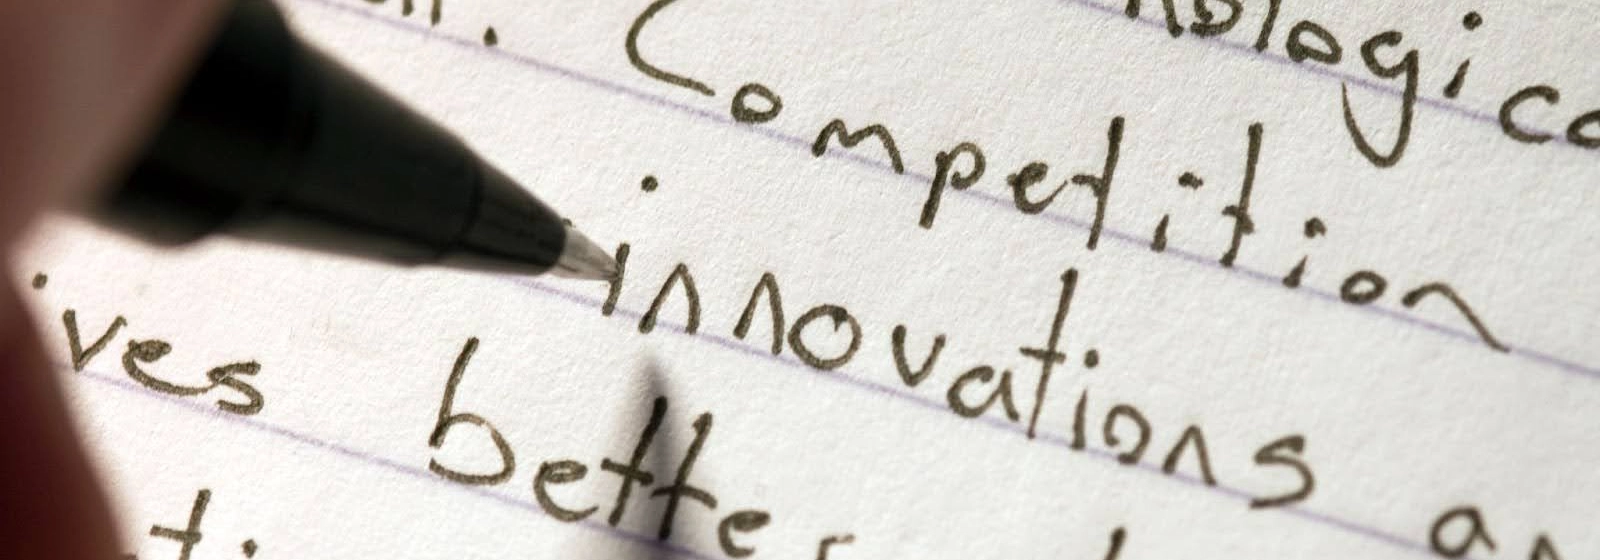 nologica
. Competition
innovations an
ives better
ti